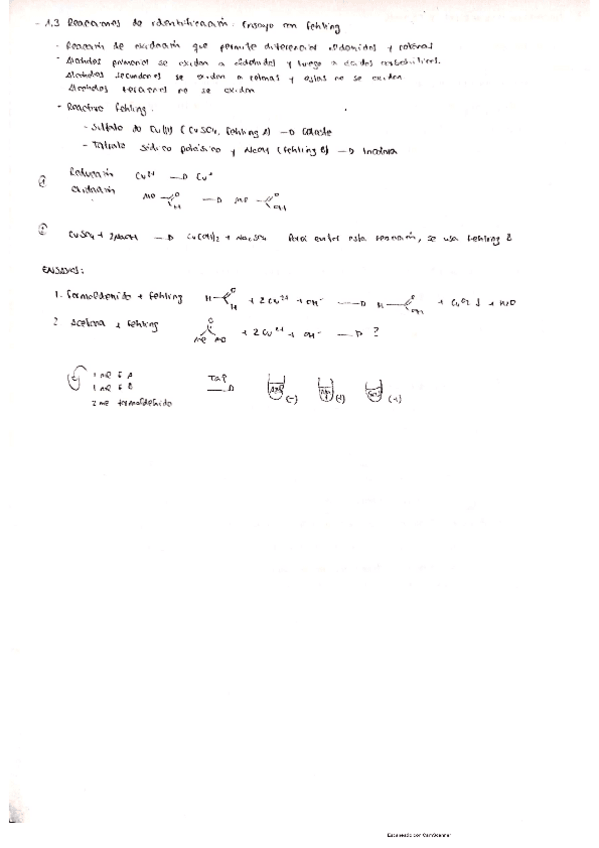 - 1.3 Reacciones de identificación: Ensayo con Fehling
- Reacción de oxidación que permite diferenciar aldehídos y cetonas
- Alcoholes primarios se oxidan a aldehídos y luego a ácidos carboxílicos.
Alcoholes secundarios se oxidan a cetonas y estas no se oxidan
Alcoholes terciarios no se oxidan
- Reactivo Fehling:
- Sulfato de Cu(II) (CuSO4, Fehling A) → Celeste
- Tartrato sódico potásico y NaOH (Fehling B) → Incolora
① Reducción Cu²⁺ → Cu⁺
Oxidación
② CuSO4 + 2NaOH → Cu(OH)2 + Na2SO4 Para evitar esta reacción, se usa Fehling B
ENSAYOS:
1. Formaldehído + Fehling H O H + 2 Cu²⁺ + OH⁻ → H O OH + Cu2O ↓ + H2O
2. Acetona + Fehling O Me Me + 2 Cu²⁺ + OH⁻ → ?
1 mL F A
1 mL F B
2 mL formaldehído
Tap →
(-) (+) (-)
Escaneado con CamScanner